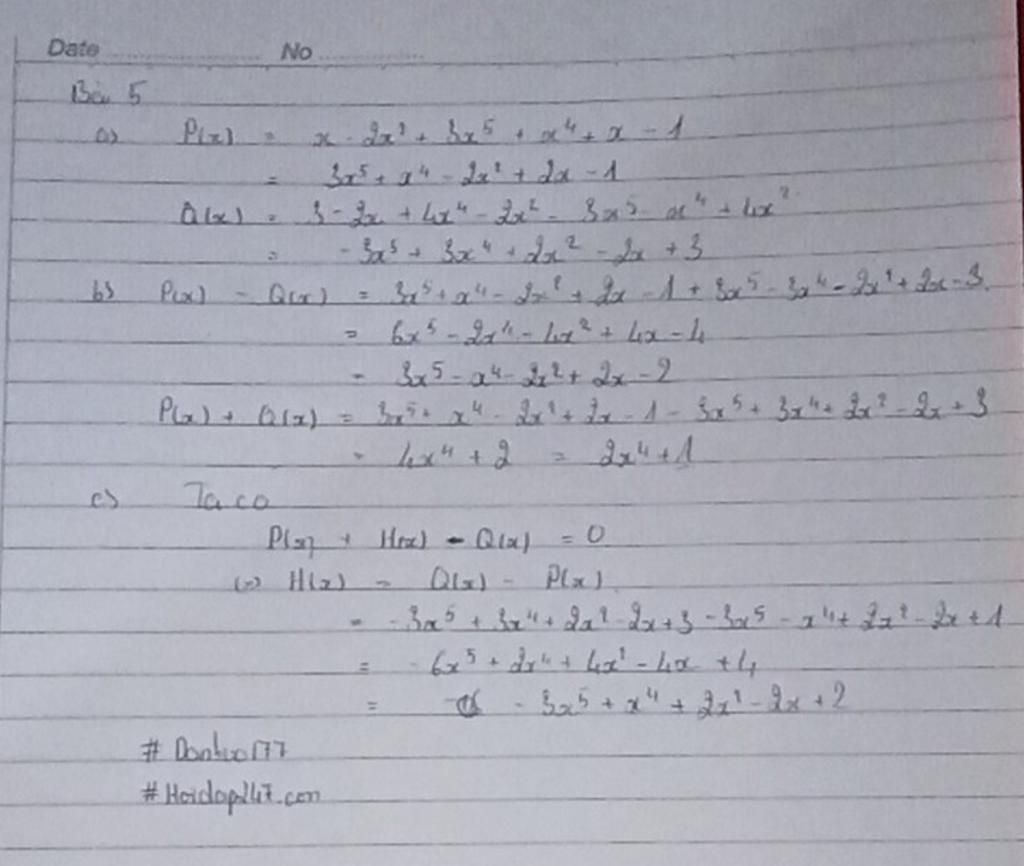 Date No
Bài 5
a) P(x) = x - 2x² + 3x⁵ + x⁴ + x - 1
= 3x⁵ + x⁴ - 2x² + 2x - 1
Q(x) = 3 - 2x + 4x⁴ - 2x² - 3x⁵ - x⁴ + 4x²
= - 3x⁵ + 3x⁴ + 2x² - 2x + 3
b) P(x) - Q(x) = 3x⁵ + x⁴ - 2x² + 2x - 1 + 3x⁵ - 3x⁴ - 2x² + 2x - 3
= 6x⁵ - 2x⁴ - 4x² + 4x - 4
= 3x⁵ - x⁴ - 2x² + 2x - 2
P(x) + Q(x) = 3x⁵ + x⁴ - 2x² + 2x - 1 - 3x⁵ + 3x⁴ + 2x² - 2x + 3
= 4x⁴ + 2 = 2x⁴ + 1
c) Ta co
P(x) + H(x) - Q(x) = 0
(=) H(x) = Q(x) - P(x)
= - 3x⁵ + 3x⁴ + 2x² - 2x + 3 - 3x⁵ - x⁴ + 2x² - 2x + 1
= - 6x⁵ + 2x⁴ + 4x² - 4x + 4
= - 3x⁵ + x⁴ + 2x² - 2x + 2
# Hoidap247.com